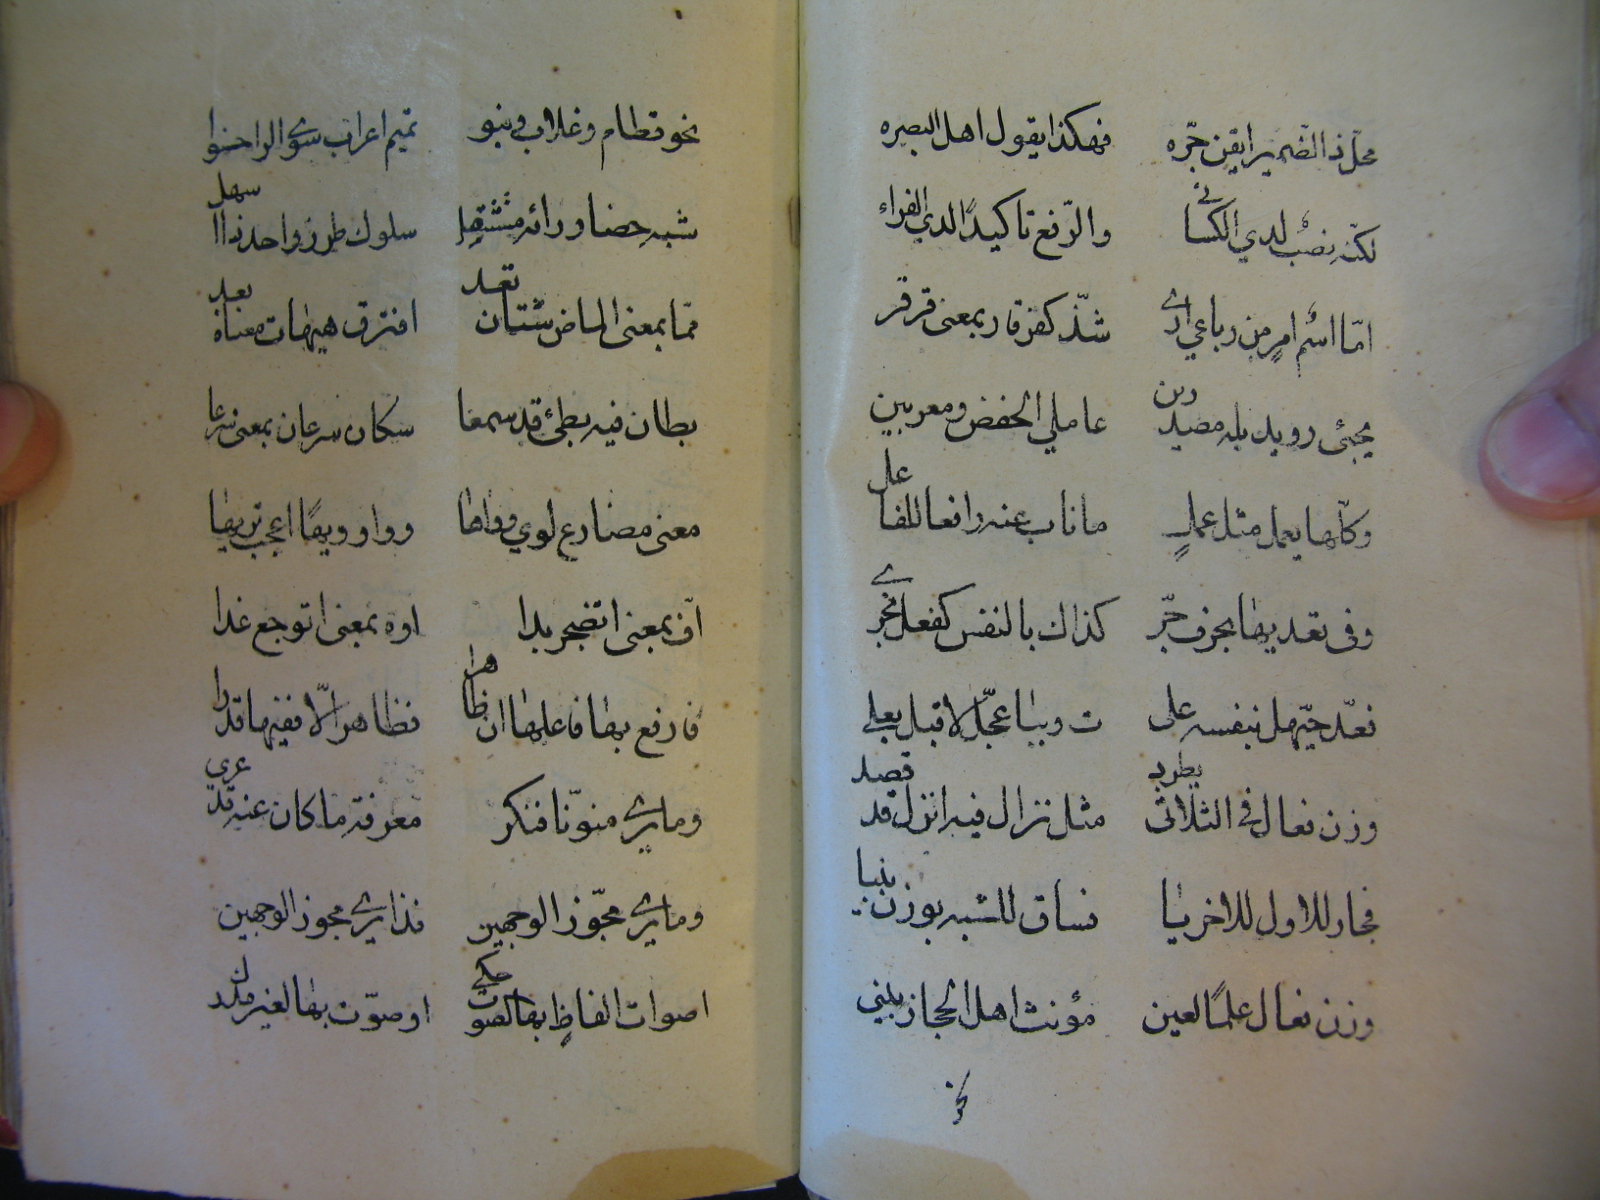 محلّ ذا الضمير ايقن جرّه فهكذا يقول اهل البصره
لكنّه نصب لدي الكسائي والرّفع تاكيدًا لدي الفراء
امّا اسم امرٍ من رباعي شذّ كقرقار بمعنى قرقر
يجئ رويد بله مصدرين عاملي الخفض ومعربين
وكلّها يعمل مثل عمل ما ناب عنه رافعا للفاعل
وفى تعديها بحرف جرّ كذاك بالنفس كفعل يجري
فعدّ حيّهل بنفسه على ت وببا عجّل لا قبل بعلى
وزن فعال فى الثلاثى يطرد مثل نزال فيه انزل قد قصد
فجار للاول للاخر يا فساق للشبه بوزن بنيا
وزن فعال علمًا لعين مؤنث اهل الحجاز يبني
نحو
نحو قطام وغلاب وبنو تميم اعراب سوى الرا
شبه حضار ورائه سلوك طرز واحد ذا سهل
فما بمعنى الماض شتان تعد افترق هيهات معناه بعد
بطان فيه بطئ قد سمعا سكان سرعان بمعنى سرعا
معنى مضارع لوي وواها ووا وويهًا اعجب
افّ بمعنى اتضجر بدا اوه بمعنى اتوجع غدا
فارفع بها فاعلها ان ظاهرا فظاهرا الّا ففيها قدرا
وما يرى منوّنا فنكر معرفة ما كان عنه قد عري
وما يرى مجّوز الوجهين فذا يرى مجوز الوجهين
اصوات الفاظٍ بها الصوت حكي او صوّت بها لغير